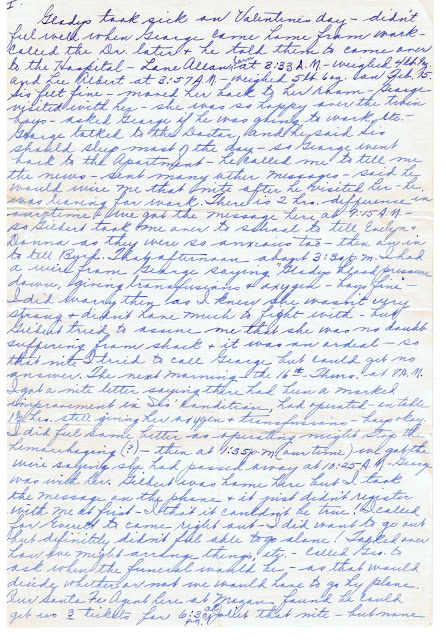 I.
Gladys took sick on Valentine's day - didn't
feel well when George came home from work -
called the Dr. later & he told them to come over
to the Hospital - Lane Allan at 3:33 A.M - weighed 4 lb
and Lee Albert at 3:57 A.M - weighed 5 lb 6 oz. on Feb. 15.
Sis felt fine - moved her back to her room - George
visited with her - she was so happy over the twin
boys - asked George if he was going to work, etc. -
George talked to the Doctor, and he said Sis
should sleep most of the day - so George went
back to the Apartment - he called me to tell me
the news - sent many other messages - said he
would wire me that nite after he visited her - he
was leaving for work. There is 2 hrs. difference in
our time - we got the message here at 9:15 A.M -
so Gilbert took me over to school to tell Evelyn &
Donna as they were so anxious too - then
to tell Byrd. That afternoon about 3:30 p.m. I had
a wire from George saying "Gladys blood pressure
down, giving transfusions & oxygen - boys fine" -
I did worry then as I knew she wasn't very
strong & didn't have much to fight with - but
Gilbert tried to assure me that she was no doubt
suffering from shock & it was an ordeal - so
that nite I tried to call George but could get no
answer. The next morning the 16th Thurs. at 7 A.M.
I got a nite letter saying there had been a marked
improvement in Sis' condition, had operated - on table
1 1/2 hrs. still giving her oxygen & transfusions - boys okey
I did feel some better as operating might stop the
hemorrhaging (?) - then at 1:35 p.m (our time) we got the
wire saying she had passed away at 10:25 A.M - George
was with her. Gilbert was home here but I took
the message on the phone & it just didn't register
with me at first - I that it couldn't be true! I called
for Everett to come right out - I did want to go out
but definitly didn't feel able to go alone! Talked over
how we might arrange things, etc. - called Geo. to
ask when the funeral would be - as that would
decide whether or not we would have to go by plane.
Our Santa Fe Agent here at Mazon found he could
get us 3 tickets for 6:30 p.m. at Joliet that nite - but none